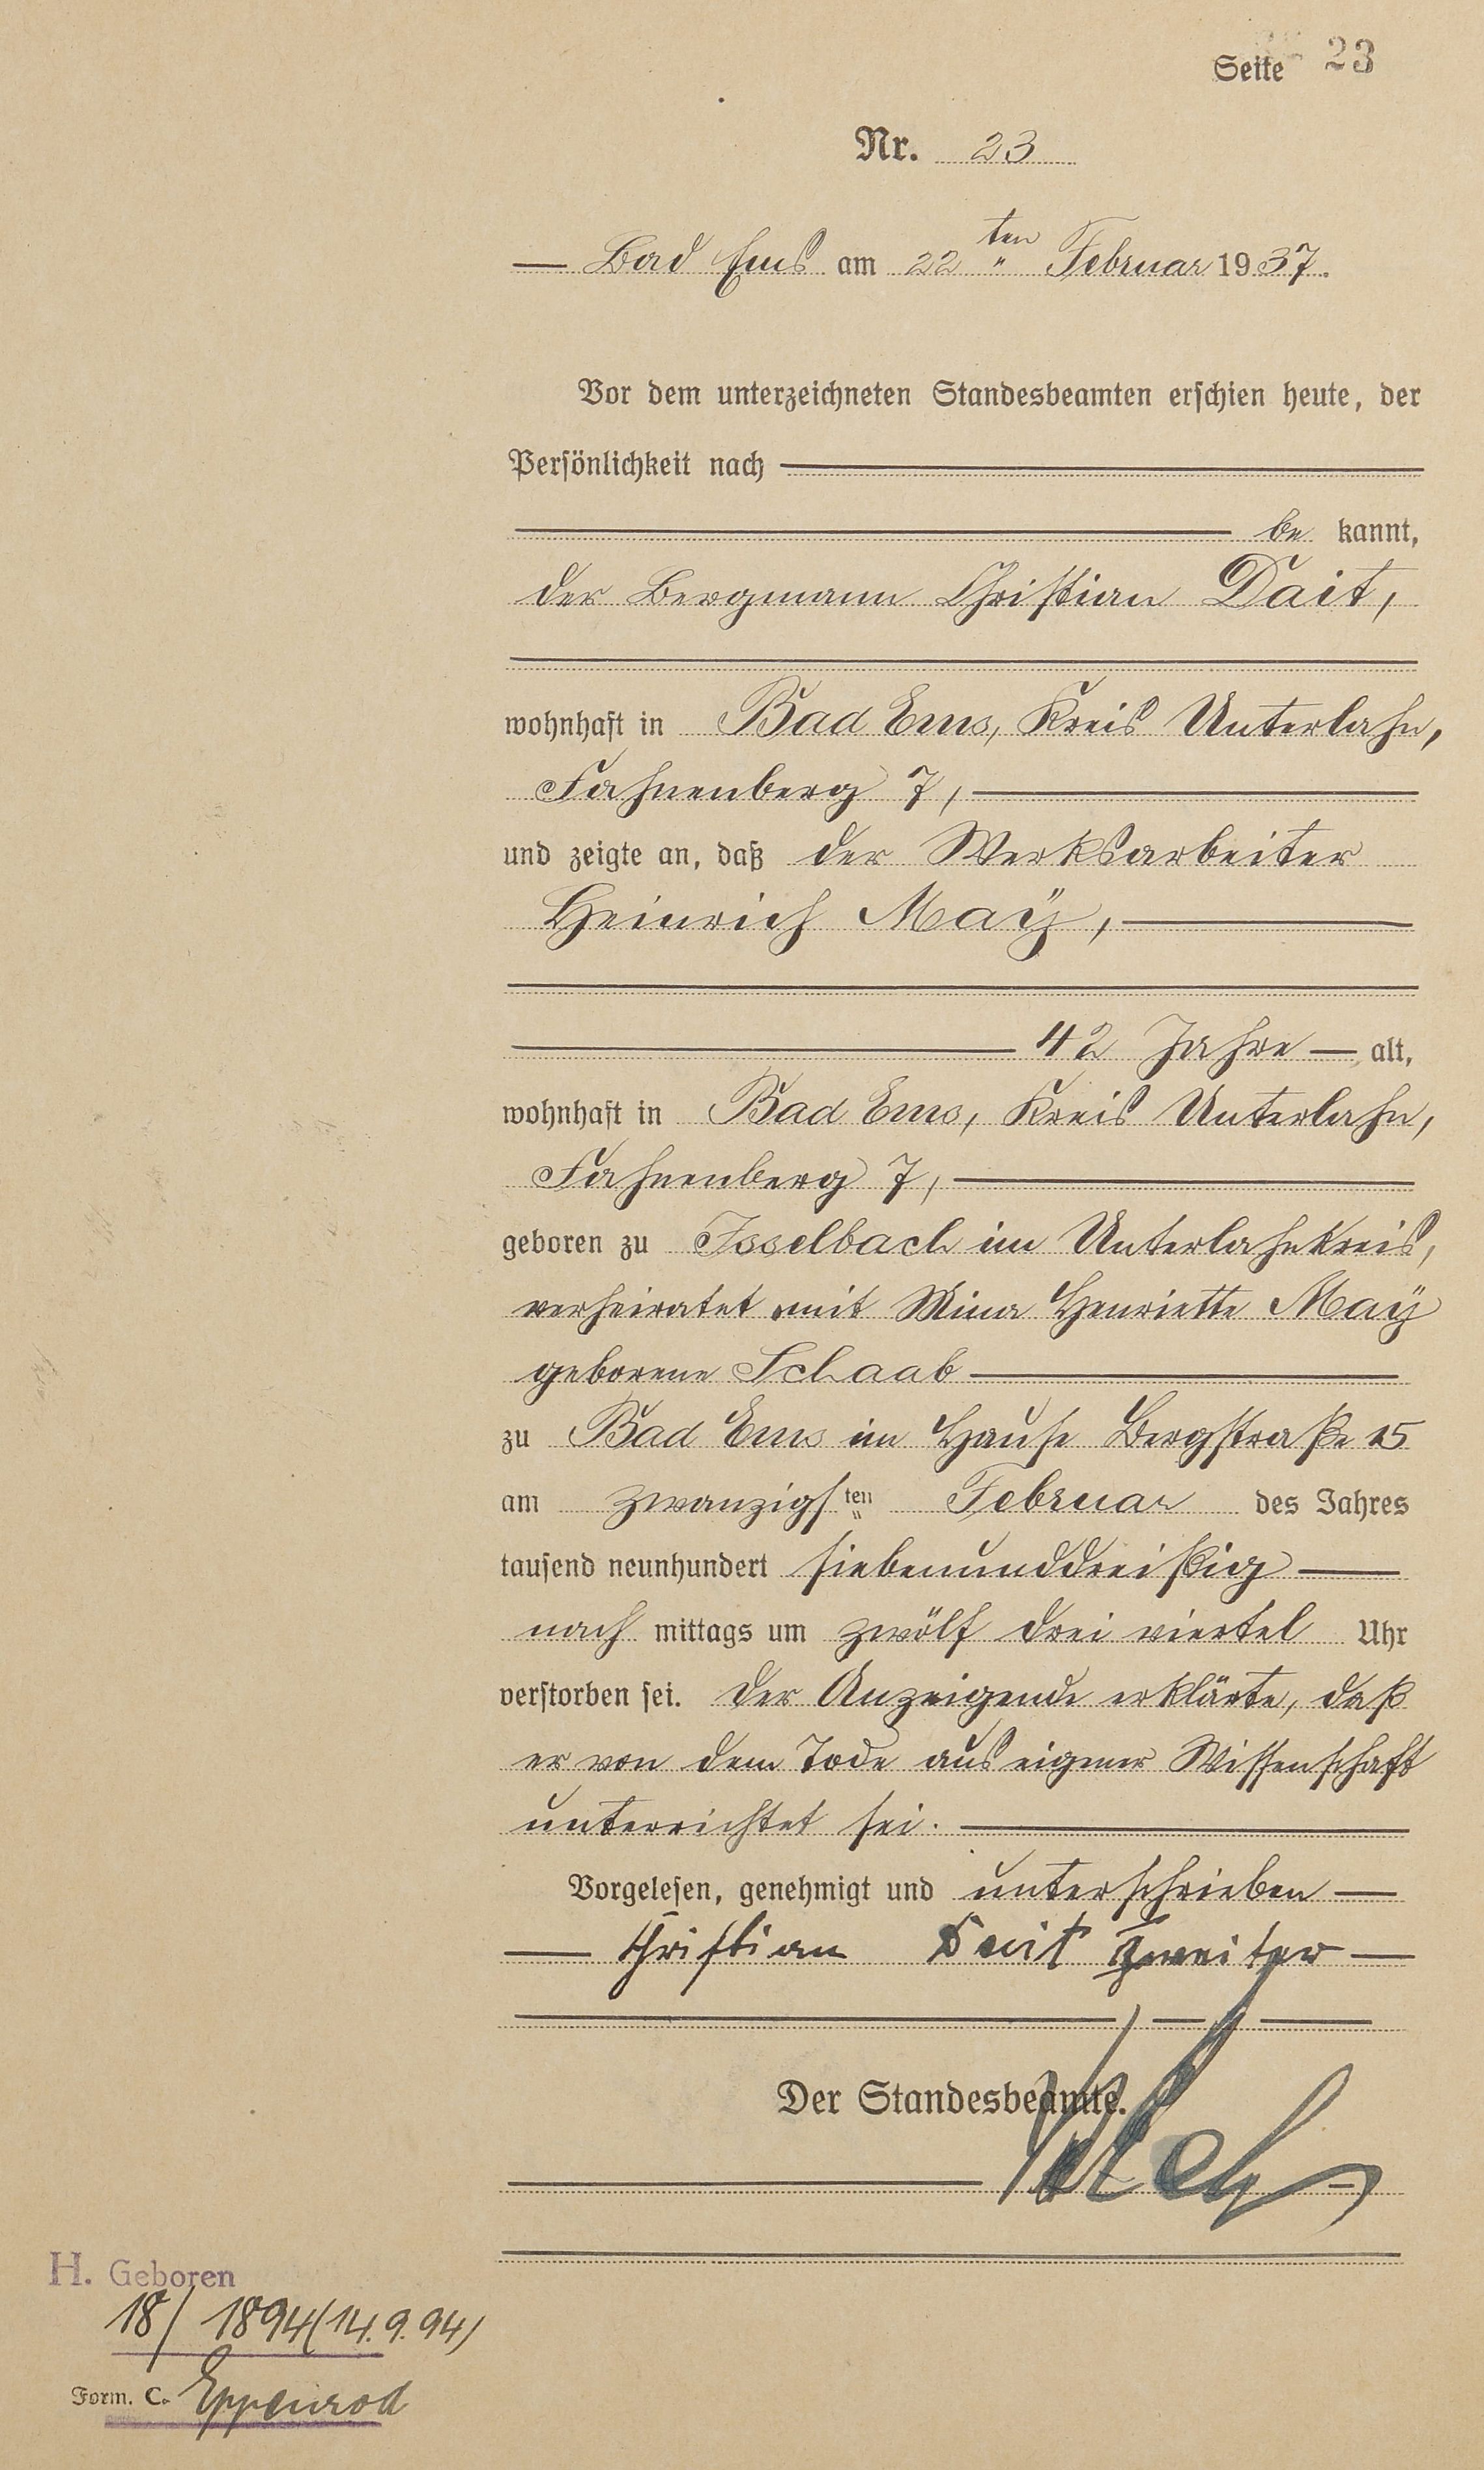 Seite 23
Nr. 23
Bad Ems am 22ten Februar 1937.
Vor dem unterzeichneten Standesbeamten erschien heute, der
Persönlichkeit nach
be kannt,
der Bergmann Christian Dait,
wohnhaft in Bad Ems, Kreis Unterlahn,
Fahnenberg 7,
und zeigte an, daß der Werksarbeiter
Heinrich Maÿ,
42 Jahre alt,
wohnhaft in Bad Ems, Kreis Unterlahn,
Fahnenberg 7,
geboren zu Isselbach im Unterlahnkreis,
verheiratet mit Mina Henriette Maÿ
geborene Schaab
zu Bad Ems im Hause Bergstraße 15
am zwanzigsten Februar des Jahres
tausend neunhundert siebenunddreißig
nach mittags um zwölf drei viertel Uhr
verstorben sei. Der Anzeigende erklärte, daß
er von dem Tode aus eigner Wissenschaft
unterrichtet sei.
Vorgelesen, genehmigt und unterschrieben
Christian Dait Zweiter
Der Standesbeamte.
H. Geboren
18/1894 (14.9.94)
Form. C. Eppenrod